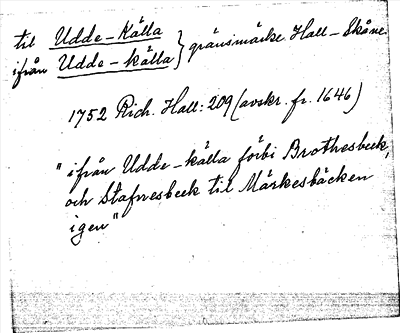 til Udde-Källa } gränsmärke Hall-Skåne
ifrån Udde-källa
1752 Rich. Hall: 209 (avskr. fr. 1646)
"ifrån Udde-källa förbi Brothesbeck,
och Stafnesbeck til Märkesbäcken
igen"